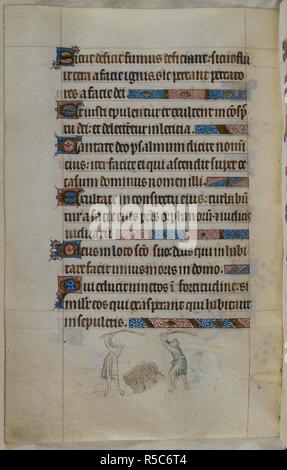 Sicut deficit fumus deficiant: sicut flu
it cera a facie ignis. sic pereant peccato
res a facie dei
Et iusti epulentur et exultent in cōsp̄c
tu dei: et delectentur in leticia.
Cantate deo psalmum dicite nom̄i
eius: iter facite ei qui ascendit super oc
casum dominus nomen illi.
Exultate in conspectu eius: turbabūn
tur a facie eius pr̄is orphanorū ⁊ iudicis
viduarum
Deus in loco sc̄o suo: deus qui in habi
tare facit unius moris in domo.
Qui educit vinctos ī fortitudine: si
milr̄ eos qui exasperant qui habitant
in sepulcris.
alamy
R5C6T4